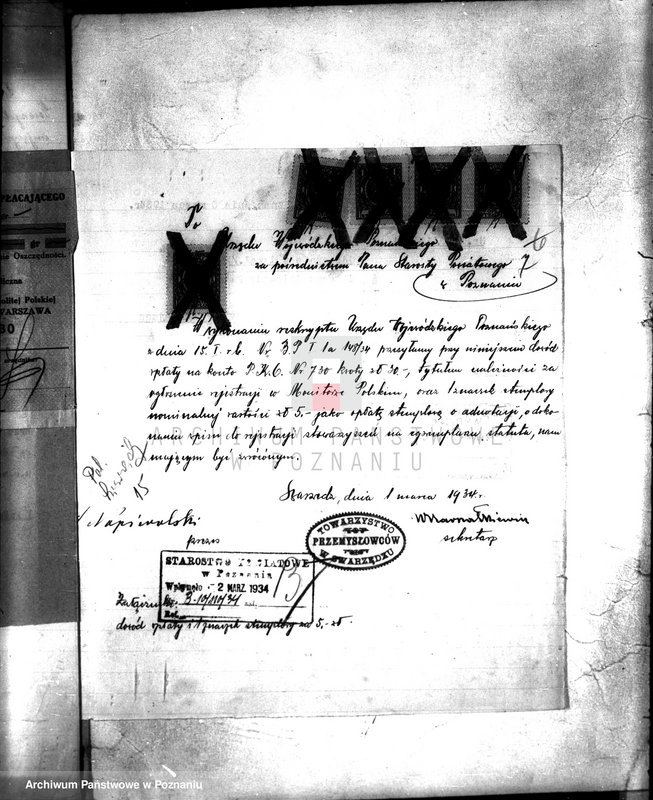 PŁACAJĄCEGO
gr
Oszczędności.
Polskiej
WARSZAWA
30
Do
Urzędu Wojewódzkiego Poznańskiego
za pośrednictwem Pana Starosty Powiatowego
w Poznaniu
7
W wykonaniu reskryptu Urzędu Wojewódzkiego Poznańskiego
z dnia 15. I. r.b. Nr. B.P I 1a 148/34 przesyłamy przy niniejszem dowód
wpłaty na konto P.K.O. Nr 730 kwoty zł 30.-, tytułem należności za
ogłoszenie rejestracji w Monitorze Polskim, oraz 1 znaczek stemplowy
nominalnej wartości zł 5.- jako opłatę stemplową o adnotacji, o doko-
naniu wpisu do rejestracji stowarzyszeń na egzemplarzu statutu, nam
mającym być zwróconym.
ARCHIWUM PAŃSTWOWE
W POZNANIU
Swarzędz, dnia 1 marca 1934 r.
15
Napieralski
prezes
TOWARZYSTWO
PRZEMYSŁOWCÓW
W SWARZĘDZU
sekretarz
STAROSTWO POWIATOWE
w Poznaniu
Wpłynęło - 2 MARZ. 1934
13
Załączniki:
dowód wpłaty i 1 znaczek stemplowy za 5,- zł.
Archiwum Państwowe w Poznaniu